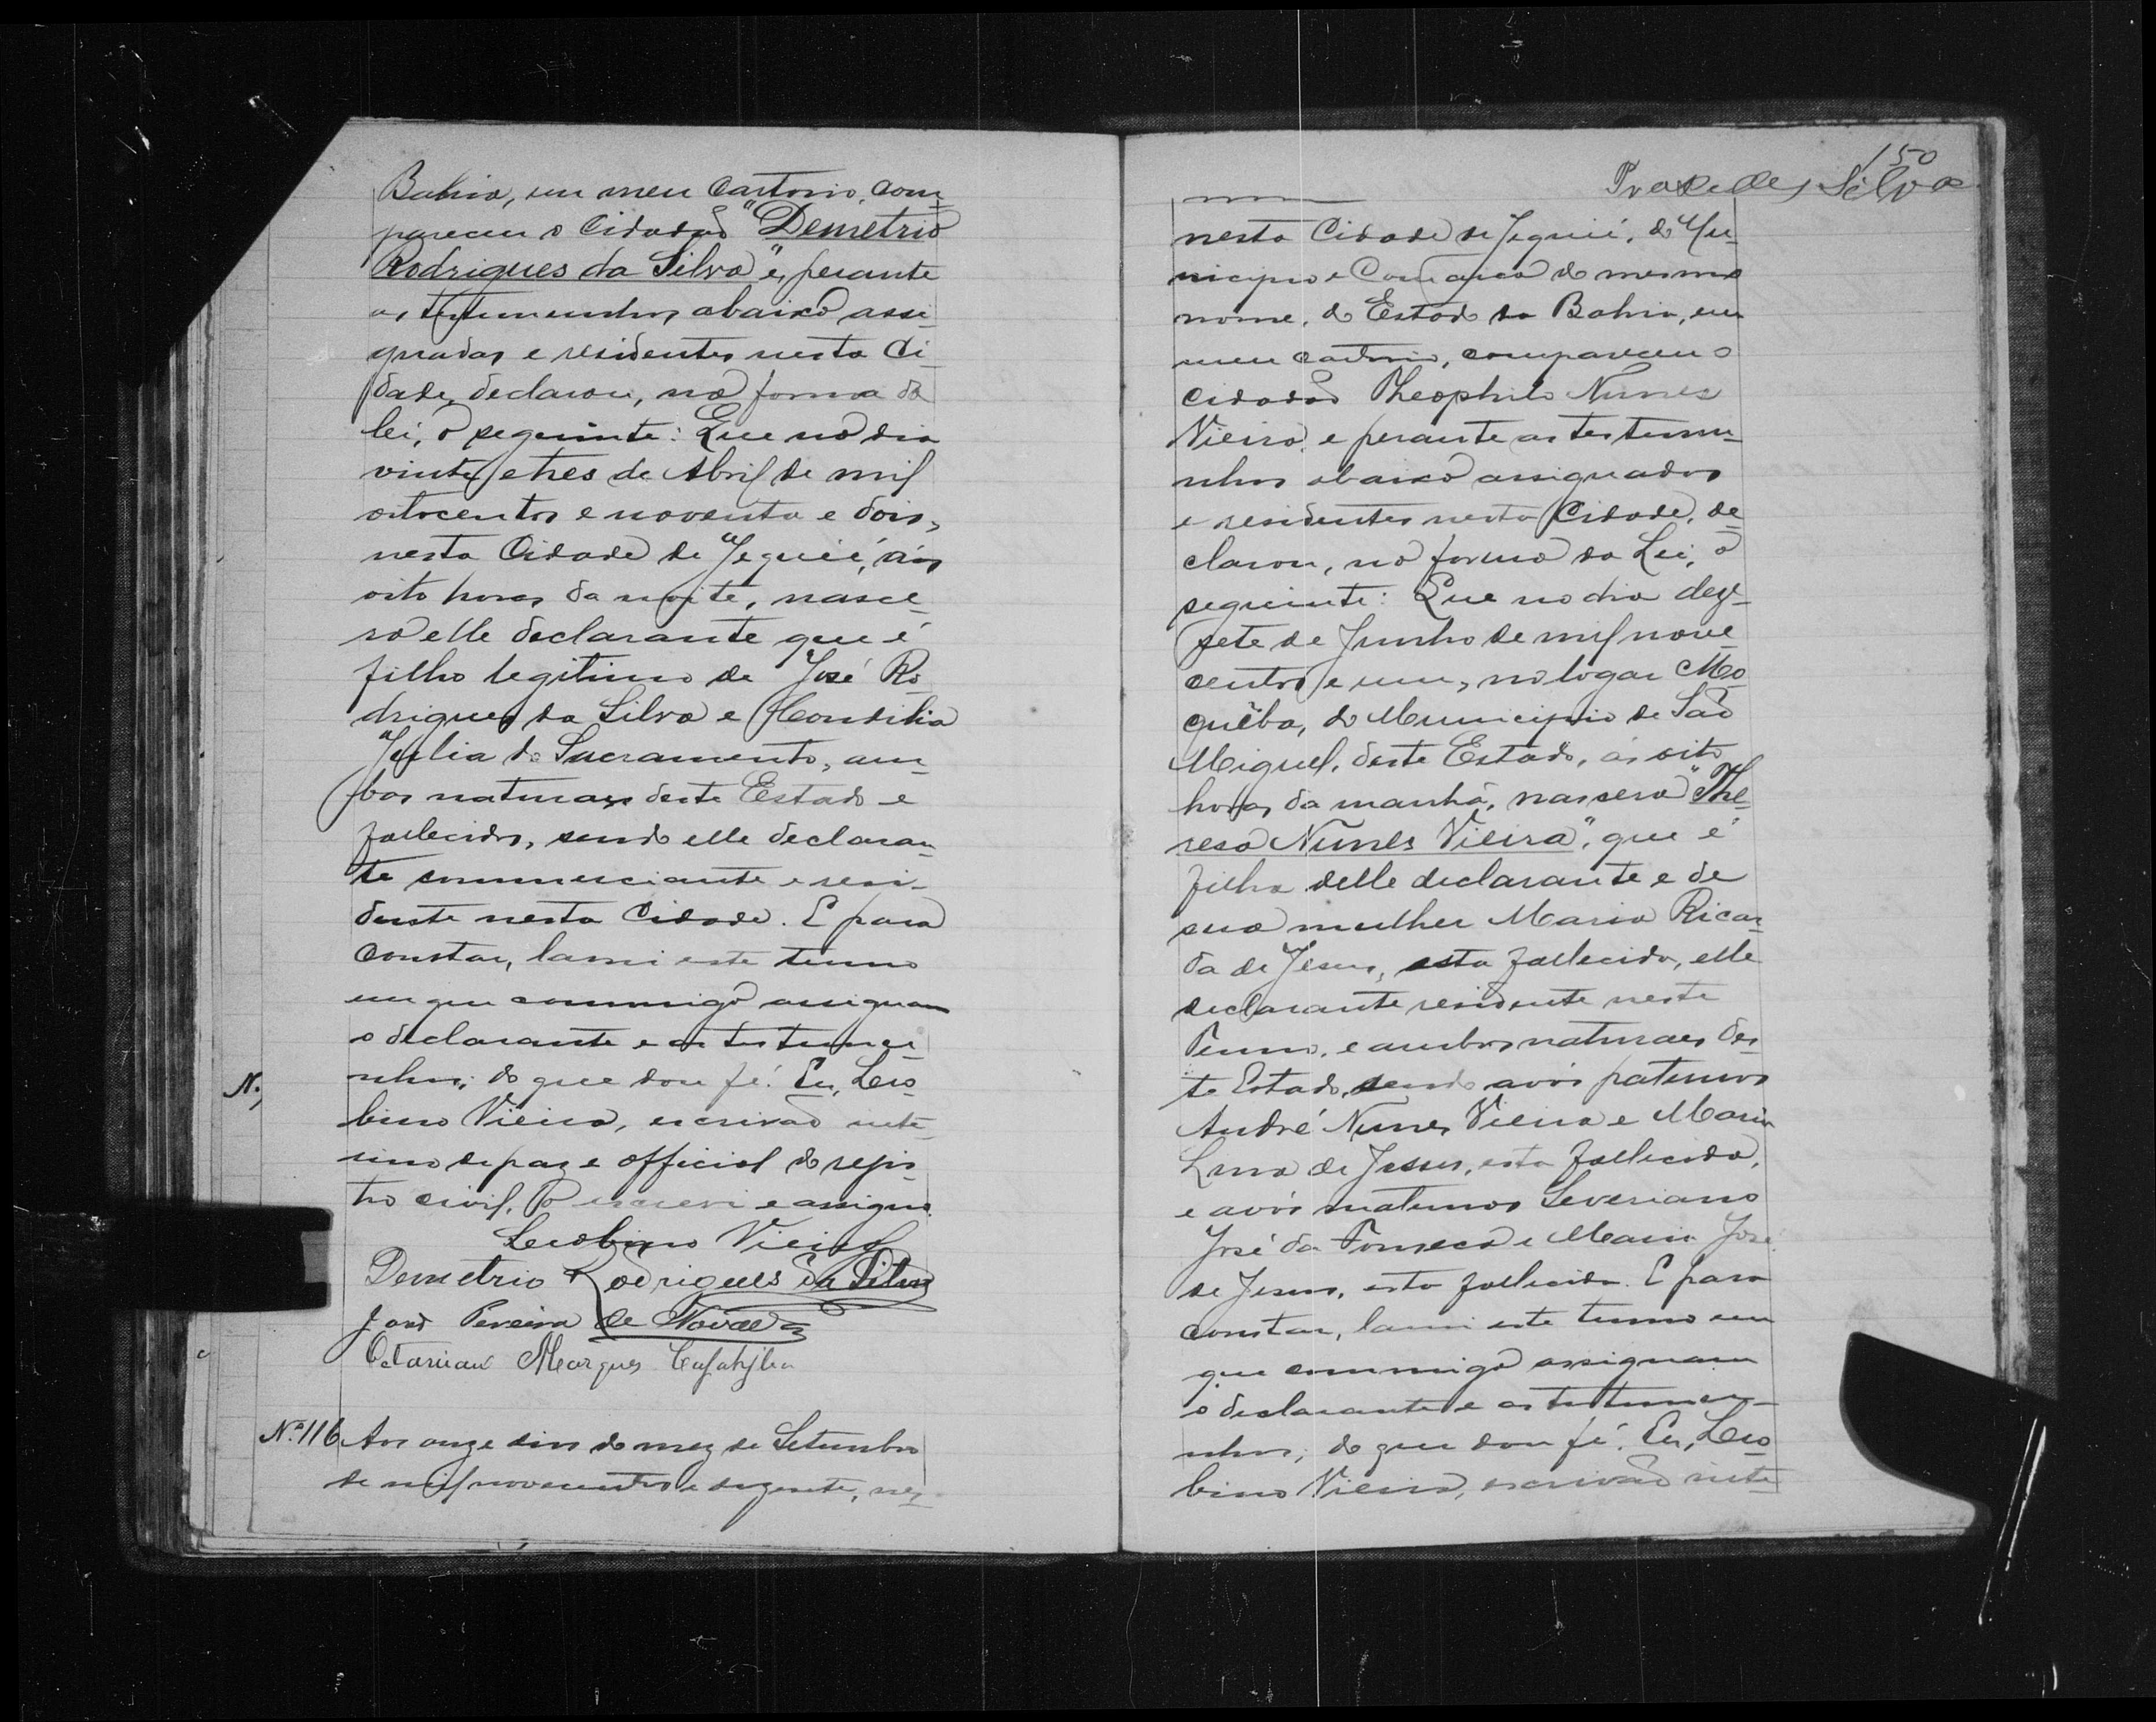 Bahia, em meu Cartorio, com-
pareceu o Cidadão "Demetrio
Rodrigues da Silva" e, perante
as testemunhas abaixo assi-
gnadas e residentes nesta Ci-
dade, declarou, na forma da
lei, o seguinte: Que no dia
vinte e tres de Abril de mil
oitocentos e noventa e dois,
nesta Cidade de Jequié, ás
oito horas da noite, nasce-
ra elle declarante que é
filho legitimo de José Ro-
drigues da Silva e
Julia do Sacramento, am-
bos naturaes deste Estado e
fallecidos, sendo elle declaran-
te commerciante e resi-
dente nesta Cidade. E para
constar, lavrei este termo
em que commigo assignam
o declarante e as testemu-
nhas; do que dou fé. Eu, Leo-
bino Vieira, escrivão inte-
rino de paz e official do regis-
tro civil, o escrevi e assigno.
Leobino Vieira
Demetrio Rodrigues da Silva
João Pereira de Novaes
Octaviano Marques
N.
Nº 116 Aos onze dias do mez de Setembro
de mil novecentos e dezesete, nes-
150
Praxedes Silva
nesta Cidade de Jequié, do Mu-
nicipio e Comarca do mesmo
nome, do Estado da Bahia, em
meu cartorio, compareceu o
cidadão Theophilo Nunes
Vieira, e perante as testemu-
nhas abaixo assignadas
e residentes nesta Cidade, de-
clarou, na forma da Lei, o
seguinte: Que no dia deze-
sete de Junho de mil nove
centos e um, no logar Mo-
quêba, do Municipio de São
Miguel, deste Estado, ás oito
horas da manhã, nascera "The-
resa Nunes Vieira", que é
filha delle declarante e de
sua mulher Maria Ricar-
da de Jesus, esta fallecida, elle
declarante residente neste
Termo, e ambos naturaes des-
te Estado, sendo avós paternos
André Nunes Vieira e Maria
Lina de Jesus, esta fallecida,
e avós maternos Severiano
José da Fonseca e Maria José
de Jesus, esta fallecida. E para
constar, lavrei este termo em
que commigo assignam
o declarante e as testemu-
nhas; do que dou fé. Eu, Leo-
bino Vieira, escrivão inte-